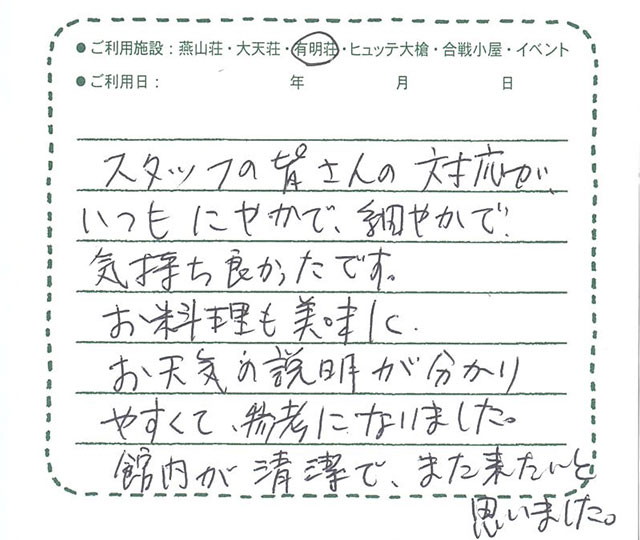 ●ご利用施設：燕山荘・大天荘・有明荘・ヒュッテ大槍・合戦小屋・イベント
●ご利用日： 年 月 日
スタッフの皆さんの対応が、
いつもにやかで、細やかで、
気持ち良かったです。
お料理も美味しく、
お天気の説明が分かり
やすくて、参考になりました。
館内が清潔で、また来たいと
思いました。